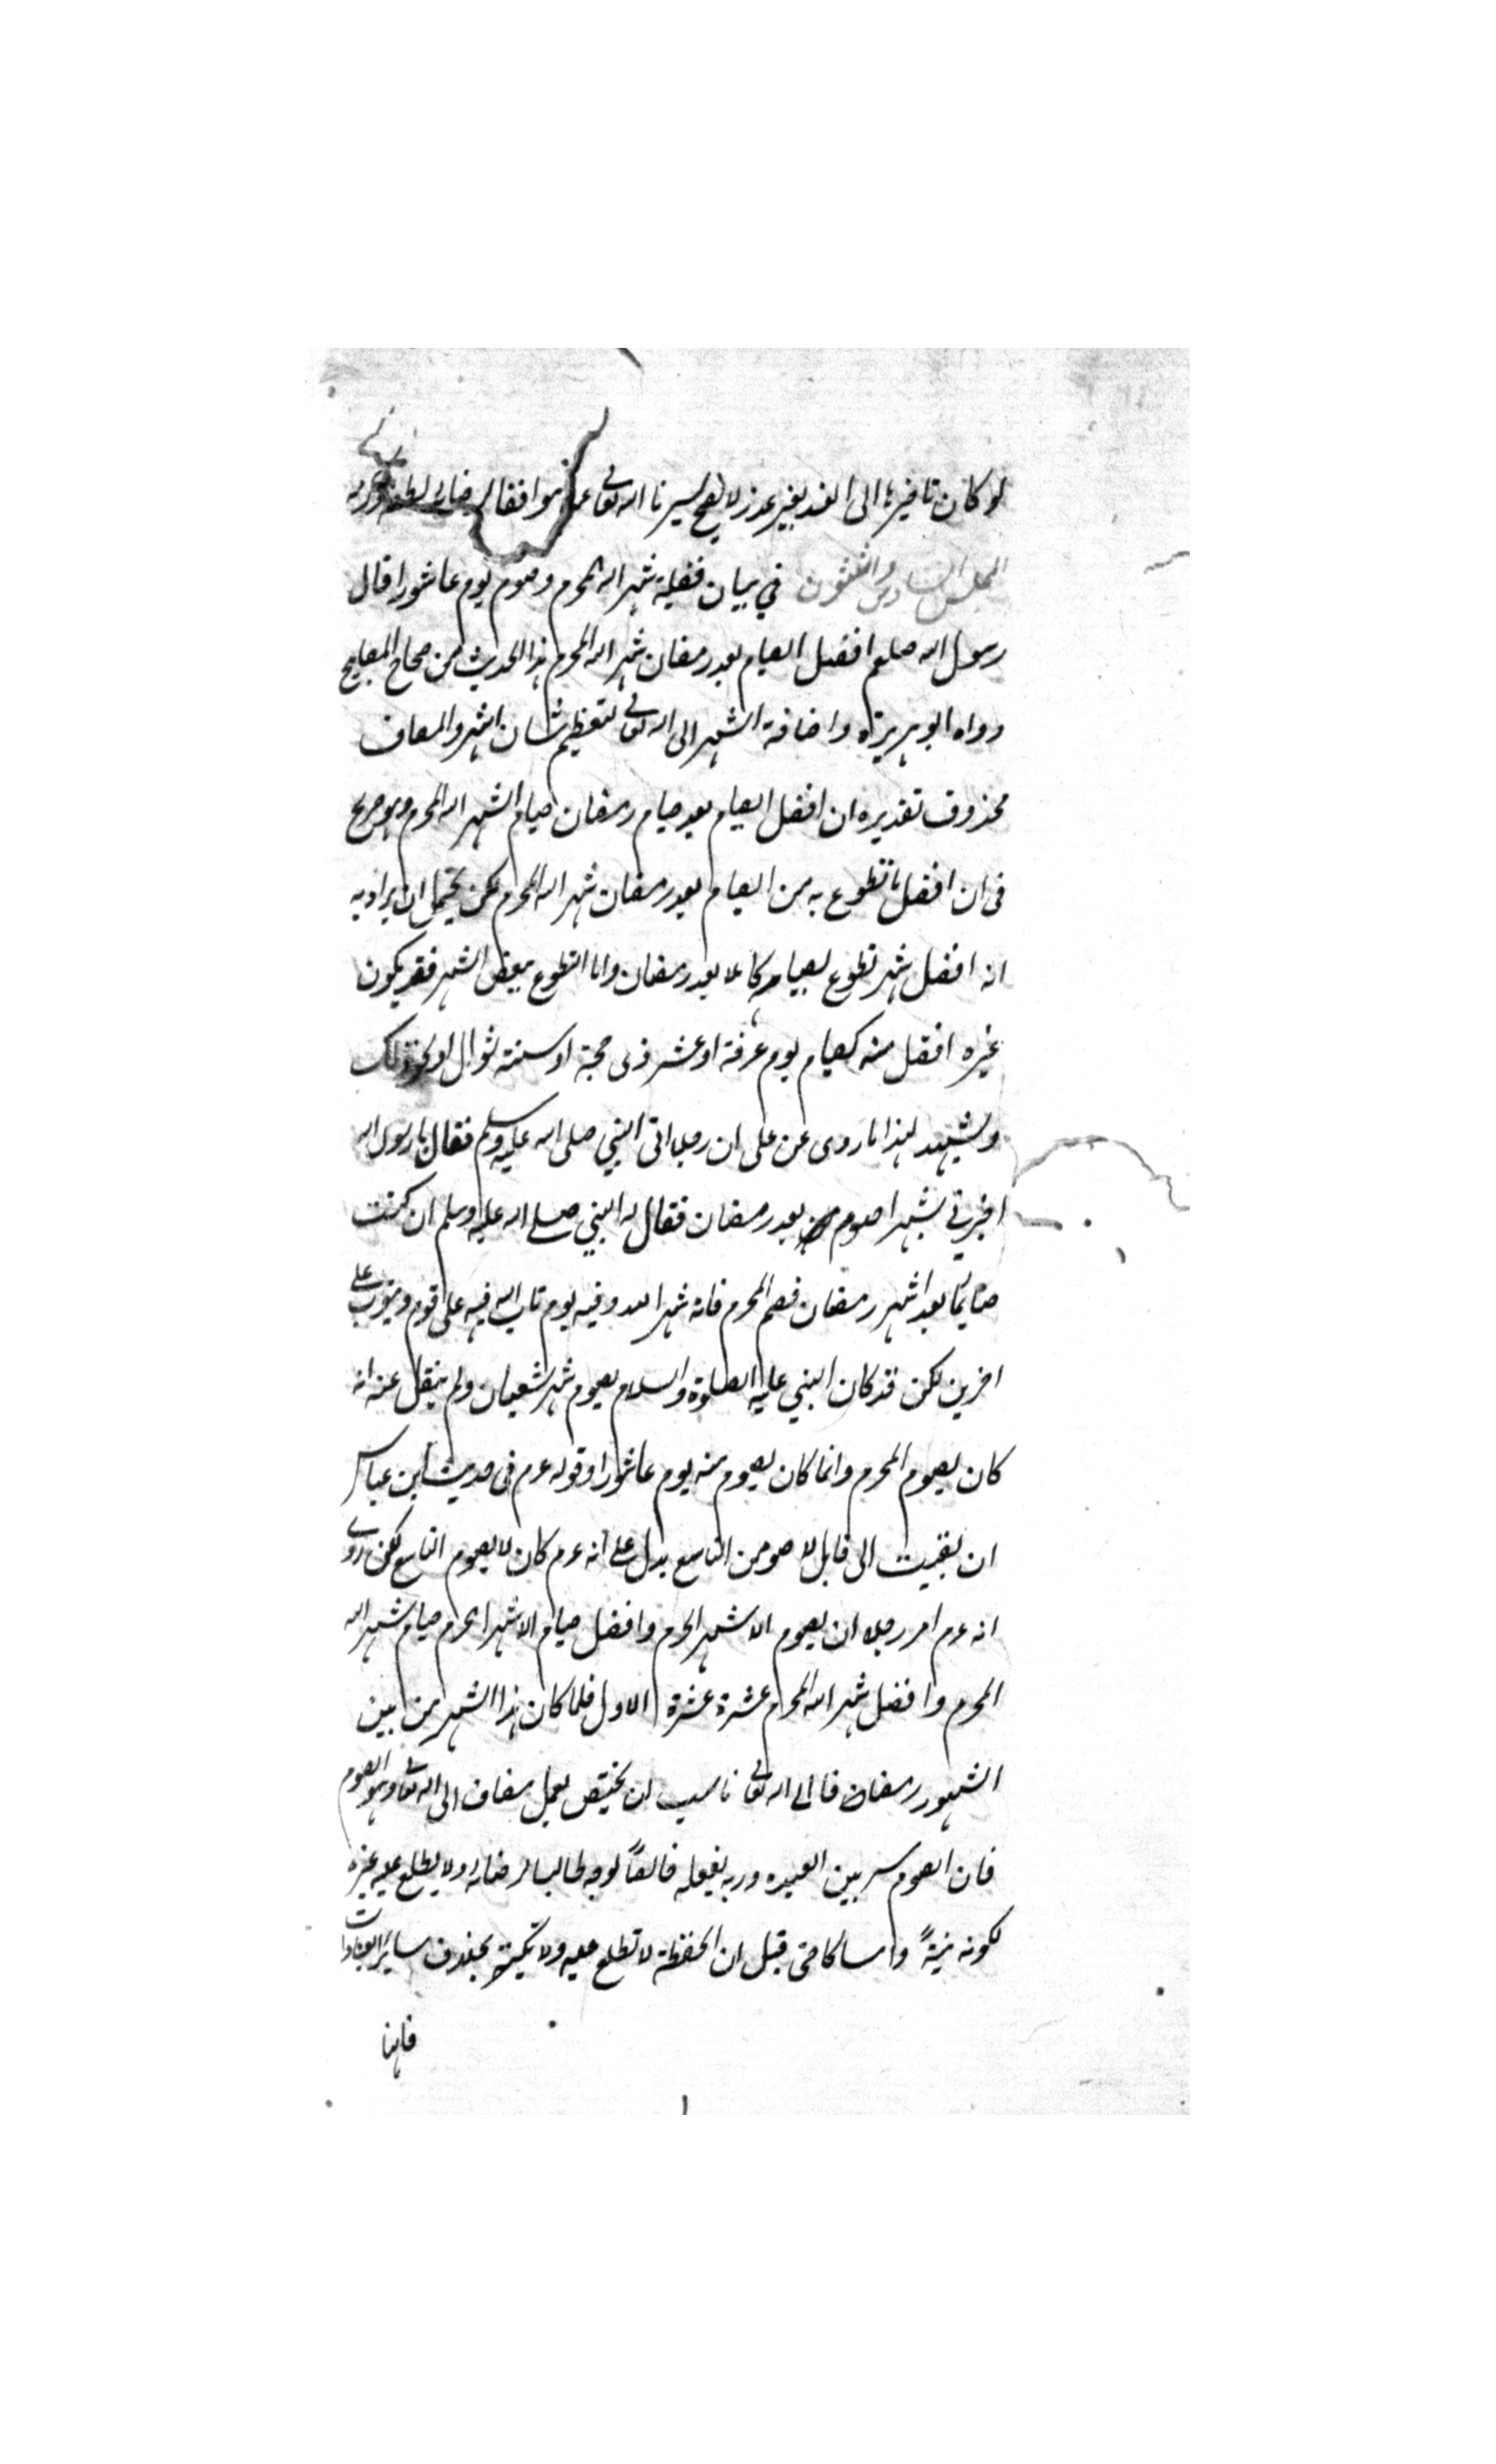 لو كان تاخيرها الى الغد بغير عذر لا يصح يسرنا الله تعالى عملا موافقا لرضائه بلطفه وكرمه
المجلس السادس والثلثون في بيان فضيلة شهر الله المحرم وصوم يوم عاشورا قال
رسول الله صلعم افضل الصيام بعد رمضان شهر الله المحرم هذا الحديث من صحاح المصابيح
رواه ابو هريرة واضافة الشهر الى الله تعالى لتعظيم شان الشهر والمضاف
محذوف تقديره ان افضل الصيام بعد صيام رمضان صيام الشهر الله المحرم وهو صريح
فى ان افضل ما تطوع به من الصيام بعد رمضان شهر الله المحرم لكن يحتمل ان يراد به
انه افضل شهر تطوع بصيامه كاملا بعد رمضان واما التطوع ببعض الشهر فقد يكون
غيره افضل منه كصيام يوم عرفة او عشر ذى حجة او ستة شوال او نحو ذلك
ويشهد لهذا ما روى عن على ان رجلا اتى النبي صلى الله عليه وسلم فقال يا رسول الله
اخبرني بشهر اصوم بعد رمضان فقال له النبي صلى الله عليه وسلم ان كنت
صايما بعد شهر رمضان فصم المحرم فانه شهر الله وفيه يوم تاب الله فيه على قوم ويتوب على
اخرين لكن قد كان النبي عليه الصلوة والسلام يصوم شهر شعبان ولم ينقل عنه انه
كان يصوم المحرم وانما كان يصوم منه يوم عاشورا وقوله عم فى حديث ابن عباس
ان بقيت الى قابل لاصومن التاسع يدل على انه عم كان لا يصوم التاسع لكن روى
انه عم امر رجلا ان يصوم الاشهر الحرم وافضل صيام الاشهر الحرم صيام شهر الله
المحرم وافضل شهر الله المحرم عشرة عشرة الاول فلما كان هذا الشهر من بين
الشهور رمضان فا الى الله تعالى ناسب ان يختص بعمل مضاف الى الله تعالى وهو الصوم
فان الصوم سر بين العبد وربه يفعله خالصا لوجه طالبا لرضائه ولا يطلع عليه غيره
لكونه نية وامساكا حتى قيل ان الحفظة لا تطلع عليه ولا تكتبه بخلاف سائر العبادات
فانها